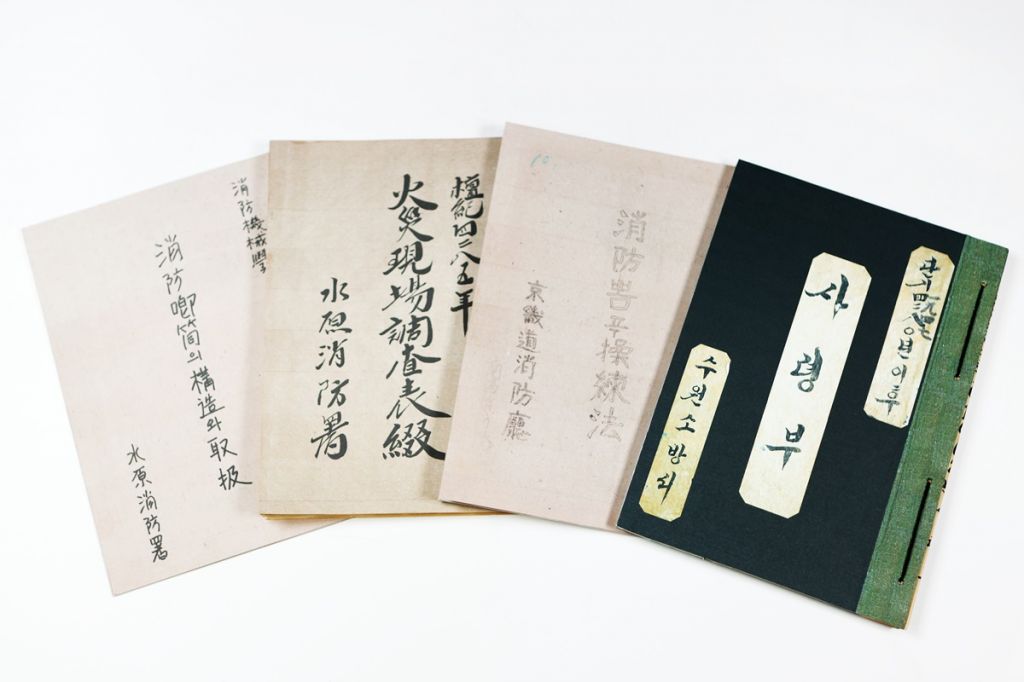 消防機械學
消防喞筒의構造와取扱
水原消防署
檀紀四二八五年
火災現場調査表綴
水原消防署
10.
消防 操練法
京畿道消防廳
단기 년이후
사령부
수원소방서